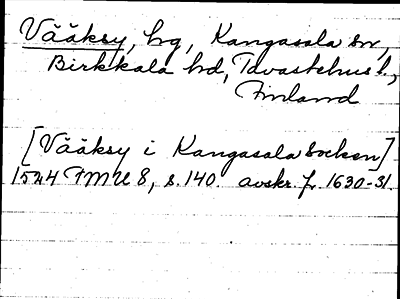 Vääksy, hg, Kangasala sn,
Birkkala hd, Tavastehus l.,
Finland
[Vääksy i Kangasala socken]
1544 FMU 8, s. 140. avskr. fr. 1630-31.